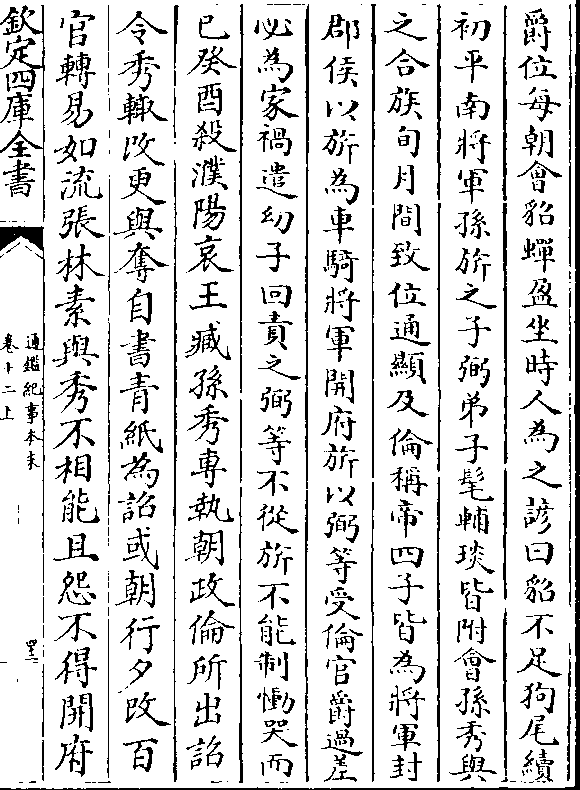 爵位每朝會貂蟬盈坐時人為之諺曰貂不足狗尾續
初平南將軍孫旂之子弼弟子髦輔琰皆附會孫秀與
之合族旬月間致位通顯及倫稱帝四子皆為將軍封
郡侯以旂為車騎將軍開府旂以弼等受倫官爵過差
必為家禍遣幼子回責之弼等不從旂不能制慟哭而
已癸酉殺濮陽哀王臧孫秀專執朝政倫所出詔
令秀輒改更與奪自書青紙為詔或朝行夕改百
官轉易如流張林素與秀不相能且怨不得開府
欽定四庫全書
通鑑紀事本末
卷十二上
四十二